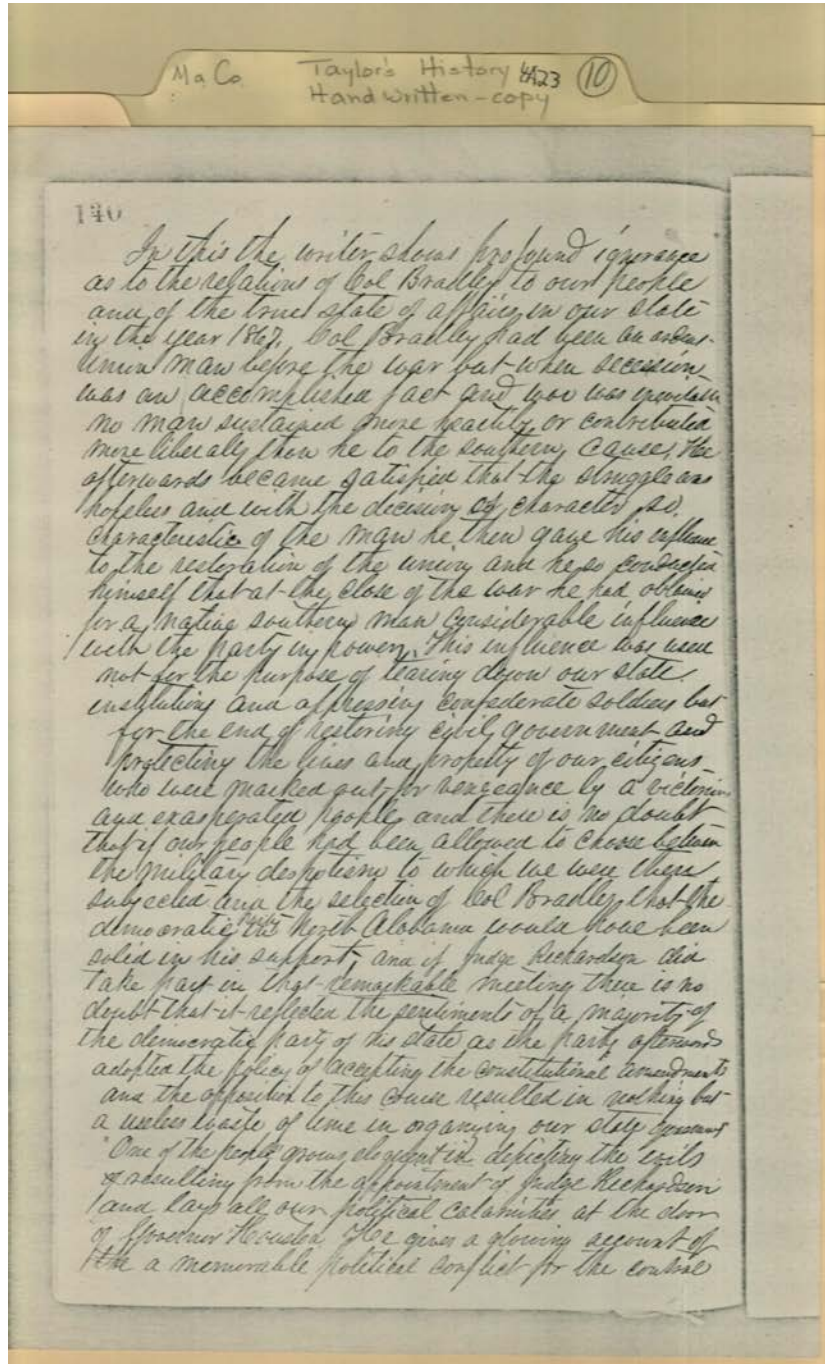 Ma. Co. Taylor's History 4A23 10
Handwritten - copy
140
In this the writer shows profound ignorance
as to the relations of Col Bradley to our people
and of the true state of affairs in our state
in the year 1867. Col Bradley had been an ardent
Union man before the war but when secession
was an accomplished fact and war was inevitable
no man sustained more heartily or contributed
more liberally than he to the southern cause. He
afterwards became satisfied that the struggle was
hopeless and with the decision of character so
characteristic of the man he then gave his influence
to the restoration of the union and he so conducted
himself that at the close of the war he had obtained
for a native southern man considerable influence
with the party in power. This influence was used
not for the purpose of tearing down our state
institutions and oppressing confederate soldiers but
for the end of restoring civil government and
protecting the lives and property of our citizens
who were marked out for vengeance by a victorious
and exasperated people and there is no doubt
that if our people had been allowed to choose between
the military despotism to which we were then
subjected and the selection of Col Bradley, that the
democratic party North Alabama would have been
solid in his support, and if Judge Richardson did
take part in that remarkable meeting there is no
doubt that it reflected the sentiments of a majority of
the democratic party of his state as the party afterwards
adopted the policy of accepting the constitutional amendments
and the opposition to this course resulted in nothing but
a useless waste of time in organizing our state government
"One of the people" grows eloquent in depicting the evils
resulting from the appointment of Judge Richardson
and lays all our political calamities at the door
of Governor Houston. He gives a glowing account of
the a memorable political conflict for the control